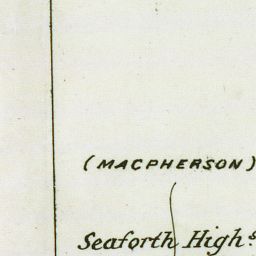 (MACPHERSON)
Seaforth Highs.